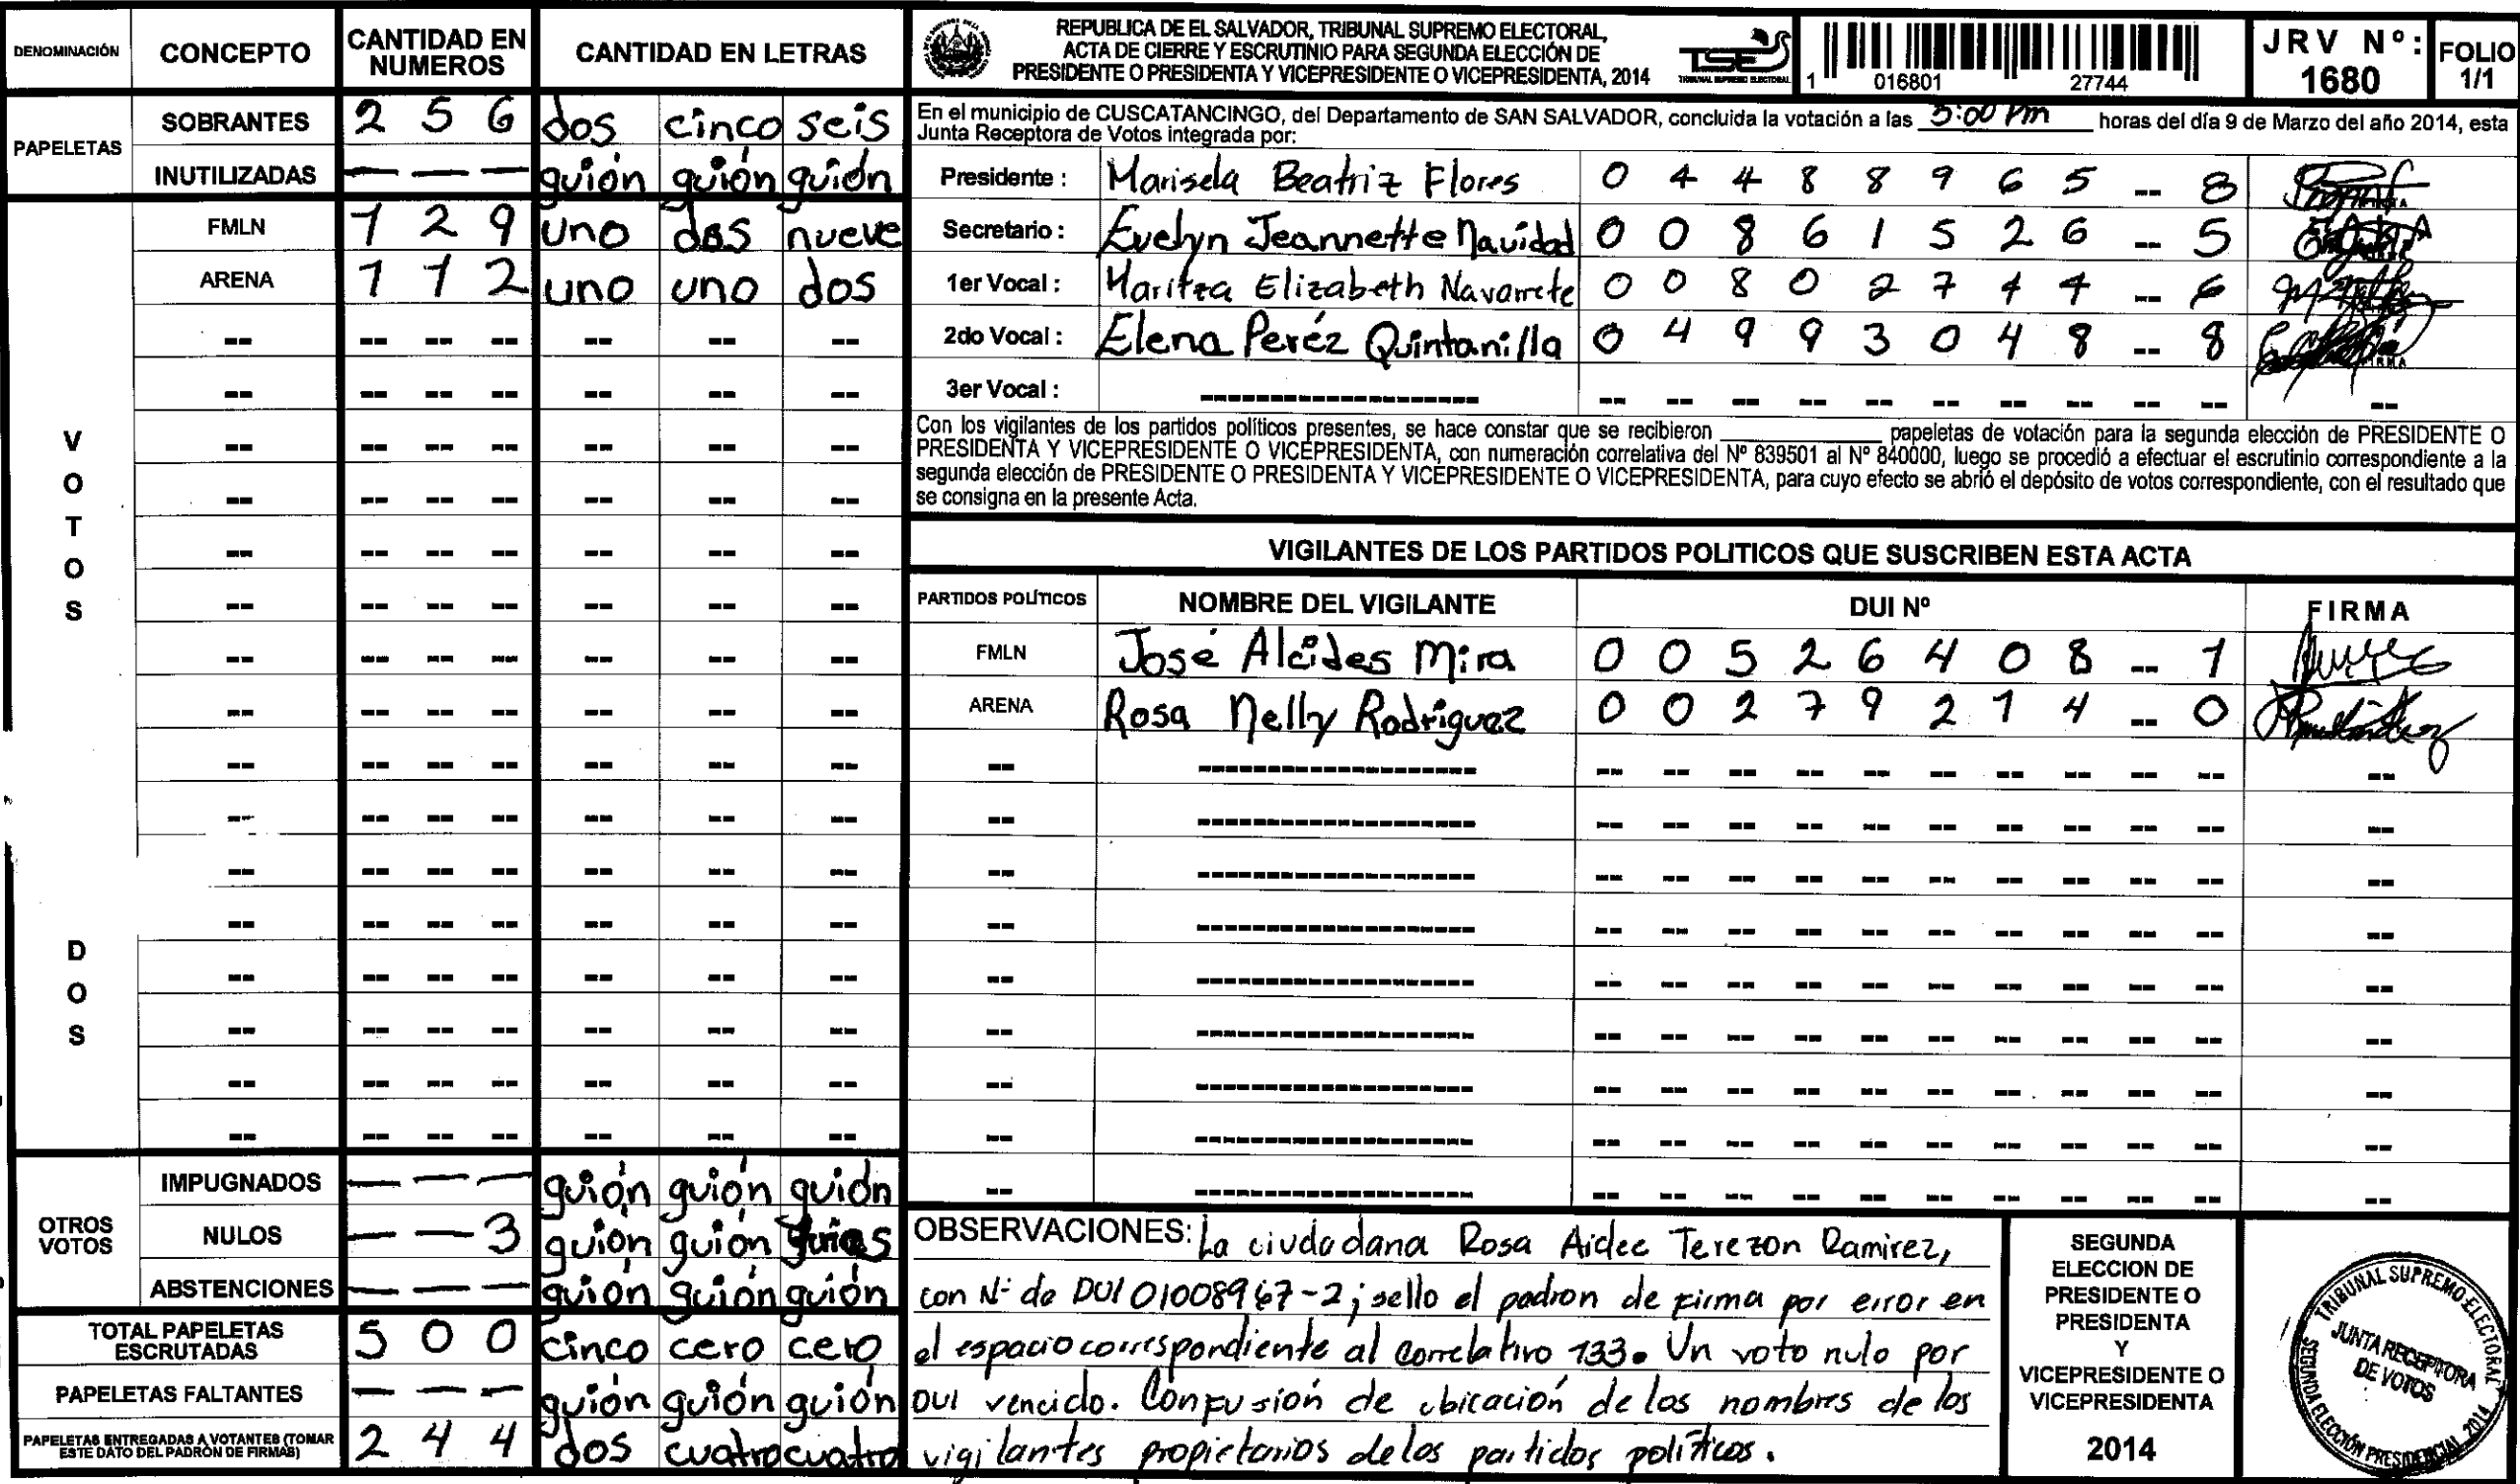 DENOMINACIÓN CONCEPTO CANTIDAD EN NUMEROS CANTIDAD EN LETRAS
PAPELETAS
SOBRANTES 2 5 6 dos cinco seis
INUTILIZADAS — — — guión guión guión
VOTOS
FMLN 1 2 9 uno dos nueve
ARENA 1 1 2 uno uno dos
-- -- -- -- -- -- --
-- -- -- -- -- -- --
-- -- -- -- -- -- --
-- -- -- -- -- -- --
-- -- -- -- -- -- --
-- -- -- -- -- -- --
-- -- -- -- -- -- --
-- -- -- -- -- -- --
-- -- -- -- -- -- --
-- -- -- -- -- -- --
-- -- -- -- -- -- --
DOS
-- -- -- -- -- -- --
-- -- -- -- -- -- --
-- -- -- -- -- -- --
-- -- -- -- -- -- --
-- -- -- -- -- -- --
OTROS VOTOS
IMPUGNADOS — — — guión guión guión
NULOS — — 3 guión guión
ABSTENCIONES — — — guión guión guión
TOTAL PAPELETAS ESCRUTADAS 5 0 0 cinco cero cero
PAPELETAS FALTANTES — — — guión guión guión
PAPELETAS ENTREGADAS A VOTANTES (TOMAR ESTE DATO DEL PADRÓN DE FIRMAS) 2 4 4 dos cuatro cuatro
REPUBLICA DE EL SALVADOR, TRIBUNAL SUPREMO ELECTORAL,
ACTA DE CIERRE Y ESCRUTINIO PARA SEGUNDA ELECCIÓN DE
PRESIDENTE O PRESIDENTA Y VICEPRESIDENTE O VICEPRESIDENTA, 2014
TSE
TRIBUNAL SUPREMO ELECTORAL
1 016801 27744
JRV Nº: 1680
FOLIO 1/1
En el municipio de CUSCATANCINGO, del Departamento de SAN SALVADOR, concluida la votación a las 5:00 pm horas del día 9 de Marzo del año 2014, esta
Junta Receptora de Votos integrada por:
Presidente : Marisela Beatriz Flores 0 4 4 8 8 9 6 5 -- 8
Secretario : Evelyn Jeannette Navidad 0 0 8 6 1 5 2 6 -- 5
1er Vocal : Maritza Elizabeth Navarrete 0 0 8 0 2 7 4 4 -- 6
2do Vocal : Elena Peréz Quintanilla 0 4 9 9 3 0 4 8 -- 8
3er Vocal : -------------------- -- -- -- -- -- -- -- -- -- -- --
Con los vigilantes de los partidos políticos presentes, se hace constar que se recibieron ____________ papeletas de votación para la segunda elección de PRESIDENTE O
PRESIDENTA Y VICEPRESIDENTE O VICEPRESIDENTA, con numeración correlativa del Nº 839501 al Nº 840000, luego se procedió a efectuar el escrutinio correspondiente a la
segunda elección de PRESIDENTE O PRESIDENTA Y VICEPRESIDENTE O VICEPRESIDENTA, para cuyo efecto se abrió el depósito de votos correspondiente, con el resultado que
se consigna en la presente Acta.
VIGILANTES DE LOS PARTIDOS POLITICOS QUE SUSCRIBEN ESTA ACTA
PARTIDOS POLÍTICOS NOMBRE DEL VIGILANTE DUI Nº FIRMA
FMLN José Alcides Mira 0 0 5 2 6 4 0 8 -- 1
ARENA Rosa Nelly Rodriguez 0 0 2 7 9 2 1 4 -- 0
-- -------------------- -- -- -- -- -- -- -- -- -- -- --
-- -------------------- -- -- -- -- -- -- -- -- -- -- --
-- -------------------- -- -- -- -- -- -- -- -- -- -- --
-- -------------------- -- -- -- -- -- -- -- -- -- -- --
-- -------------------- -- -- -- -- -- -- -- -- -- -- --
-- -------------------- -- -- -- -- -- -- -- -- -- -- --
-- -------------------- -- -- -- -- -- -- -- -- -- -- --
-- -------------------- -- -- -- -- -- -- -- -- -- -- --
-- -------------------- -- -- -- -- -- -- -- -- -- -- --
OBSERVACIONES: La ciudadana Rosa Aidee Terezon Ramirez,
con Nº de DUI 01008967-2; sello el padron de firma por error en
el espacio correspondiente al correlativo 133. Un voto nulo por
DUI vencido. Confusión de ubicación de los nombres de los
vigilantes propietarios de los partidos políticos.
SEGUNDA
ELECCION DE
PRESIDENTE O
PRESIDENTA
Y
VICEPRESIDENTE O
VICEPRESIDENTA
2014
TRIBUNAL SUPREMO ELECTORAL
JUNTA RECEPTORA
DE VOTOS
SEGUNDA ELECCIÓN PRESIDENCIAL 2014